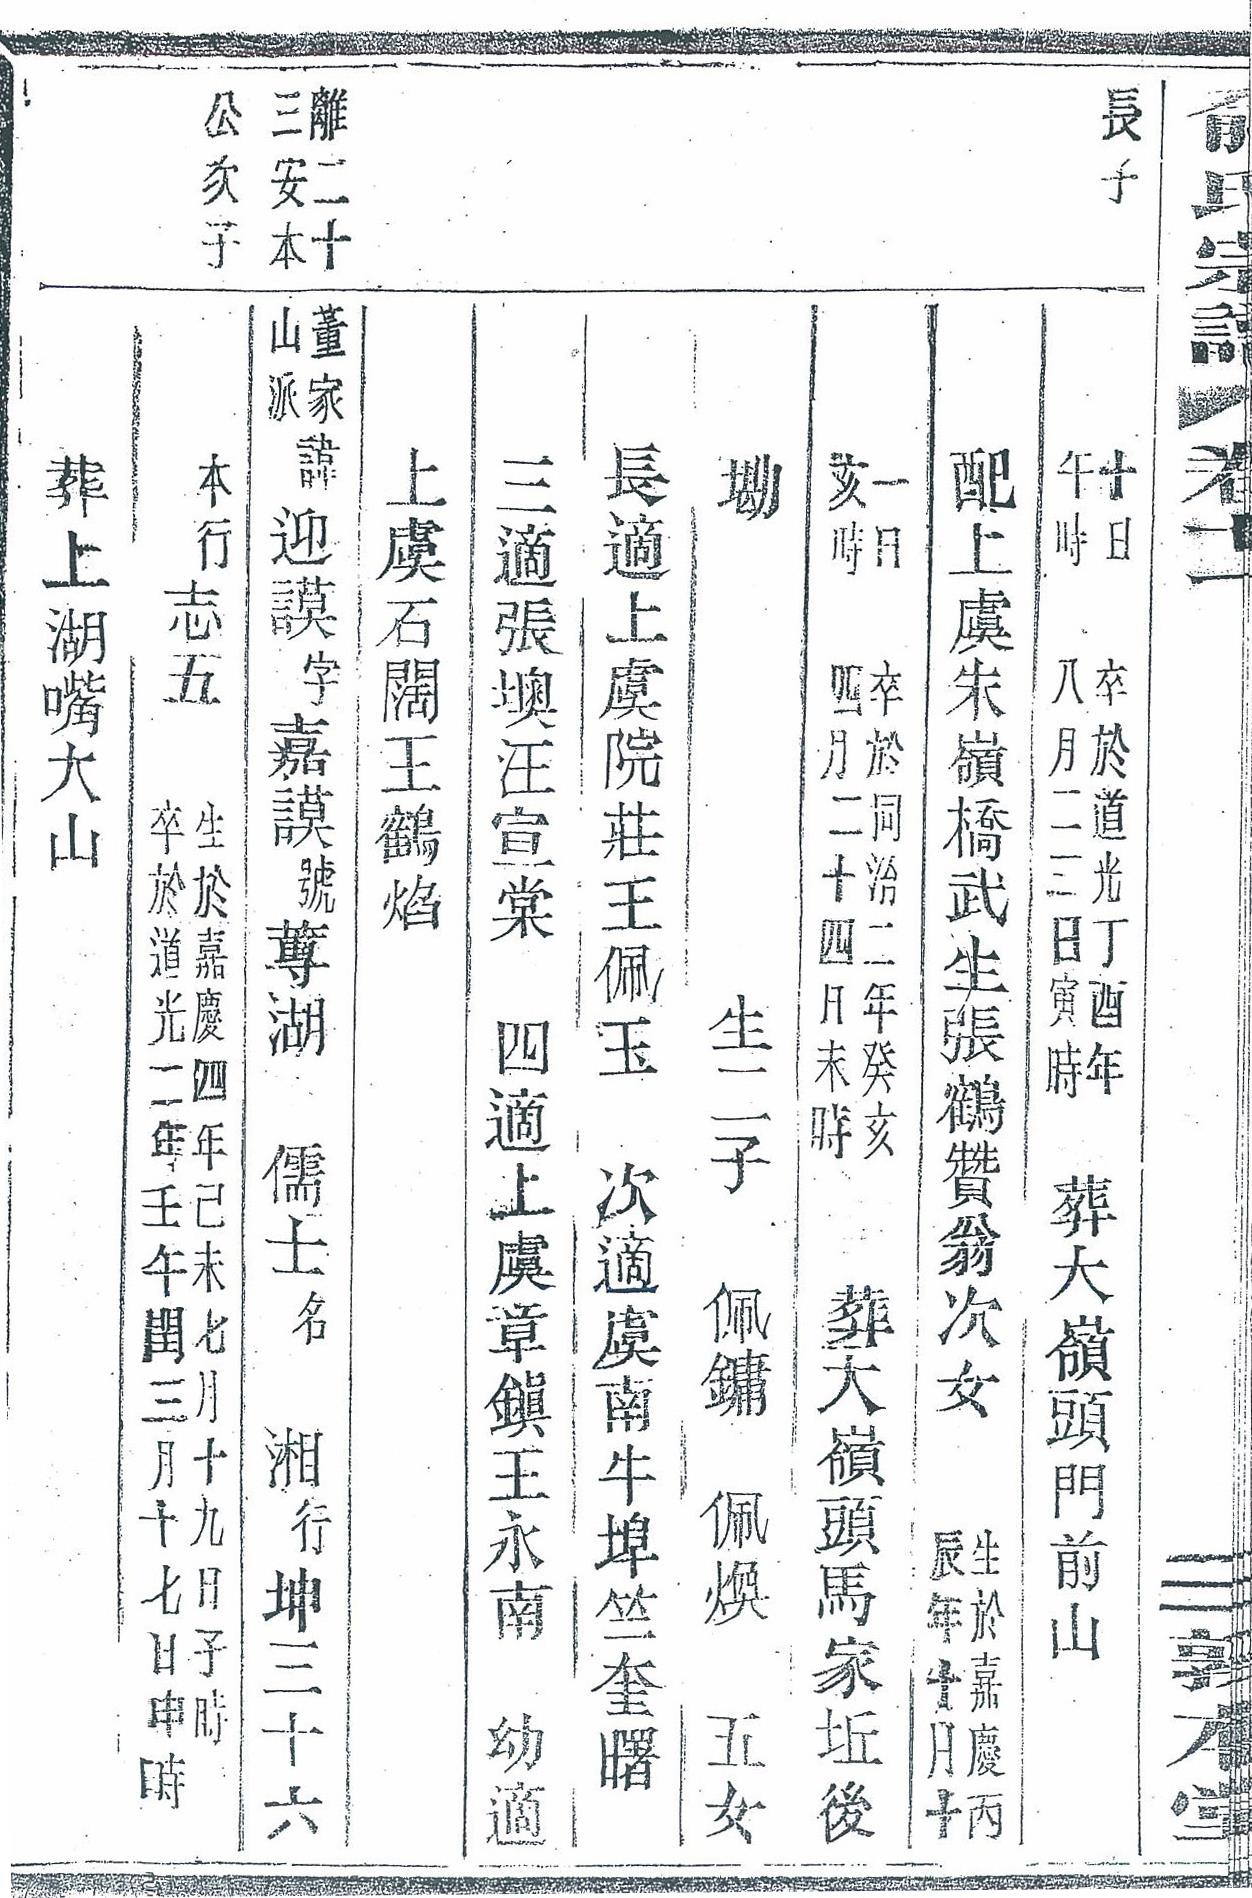 俞氏宗譜 卷十一 三 敦本堂
長子
十日午時 卒於道光丁酉年八月二三日寅時 葬大嶺頭門前山
配上虞朱嶺橋武生張鶴贊翁次女 生於嘉慶丙辰年十月十
一日亥時 卒於同治二年癸亥四月二十四日未時 葬大嶺頭馬家坵後
墈 生二子 佩鏞 佩煥 五女
長適上虞院莊王佩玉 次適虞南牛埠竺奎曙
三適張墺汪宣棠 四適上虞章鎮王永南 幼適
上虞石闊王鶴焰
離二十三安本公次子
董家山派 諱迎謨字嘉謨號蓴湖 儒士名 湘行坤三十六
本行志五 生於嘉慶四年己未七月十九日子時 卒於道光二年壬午閏三月十七日申時
葬上湖嘴大山